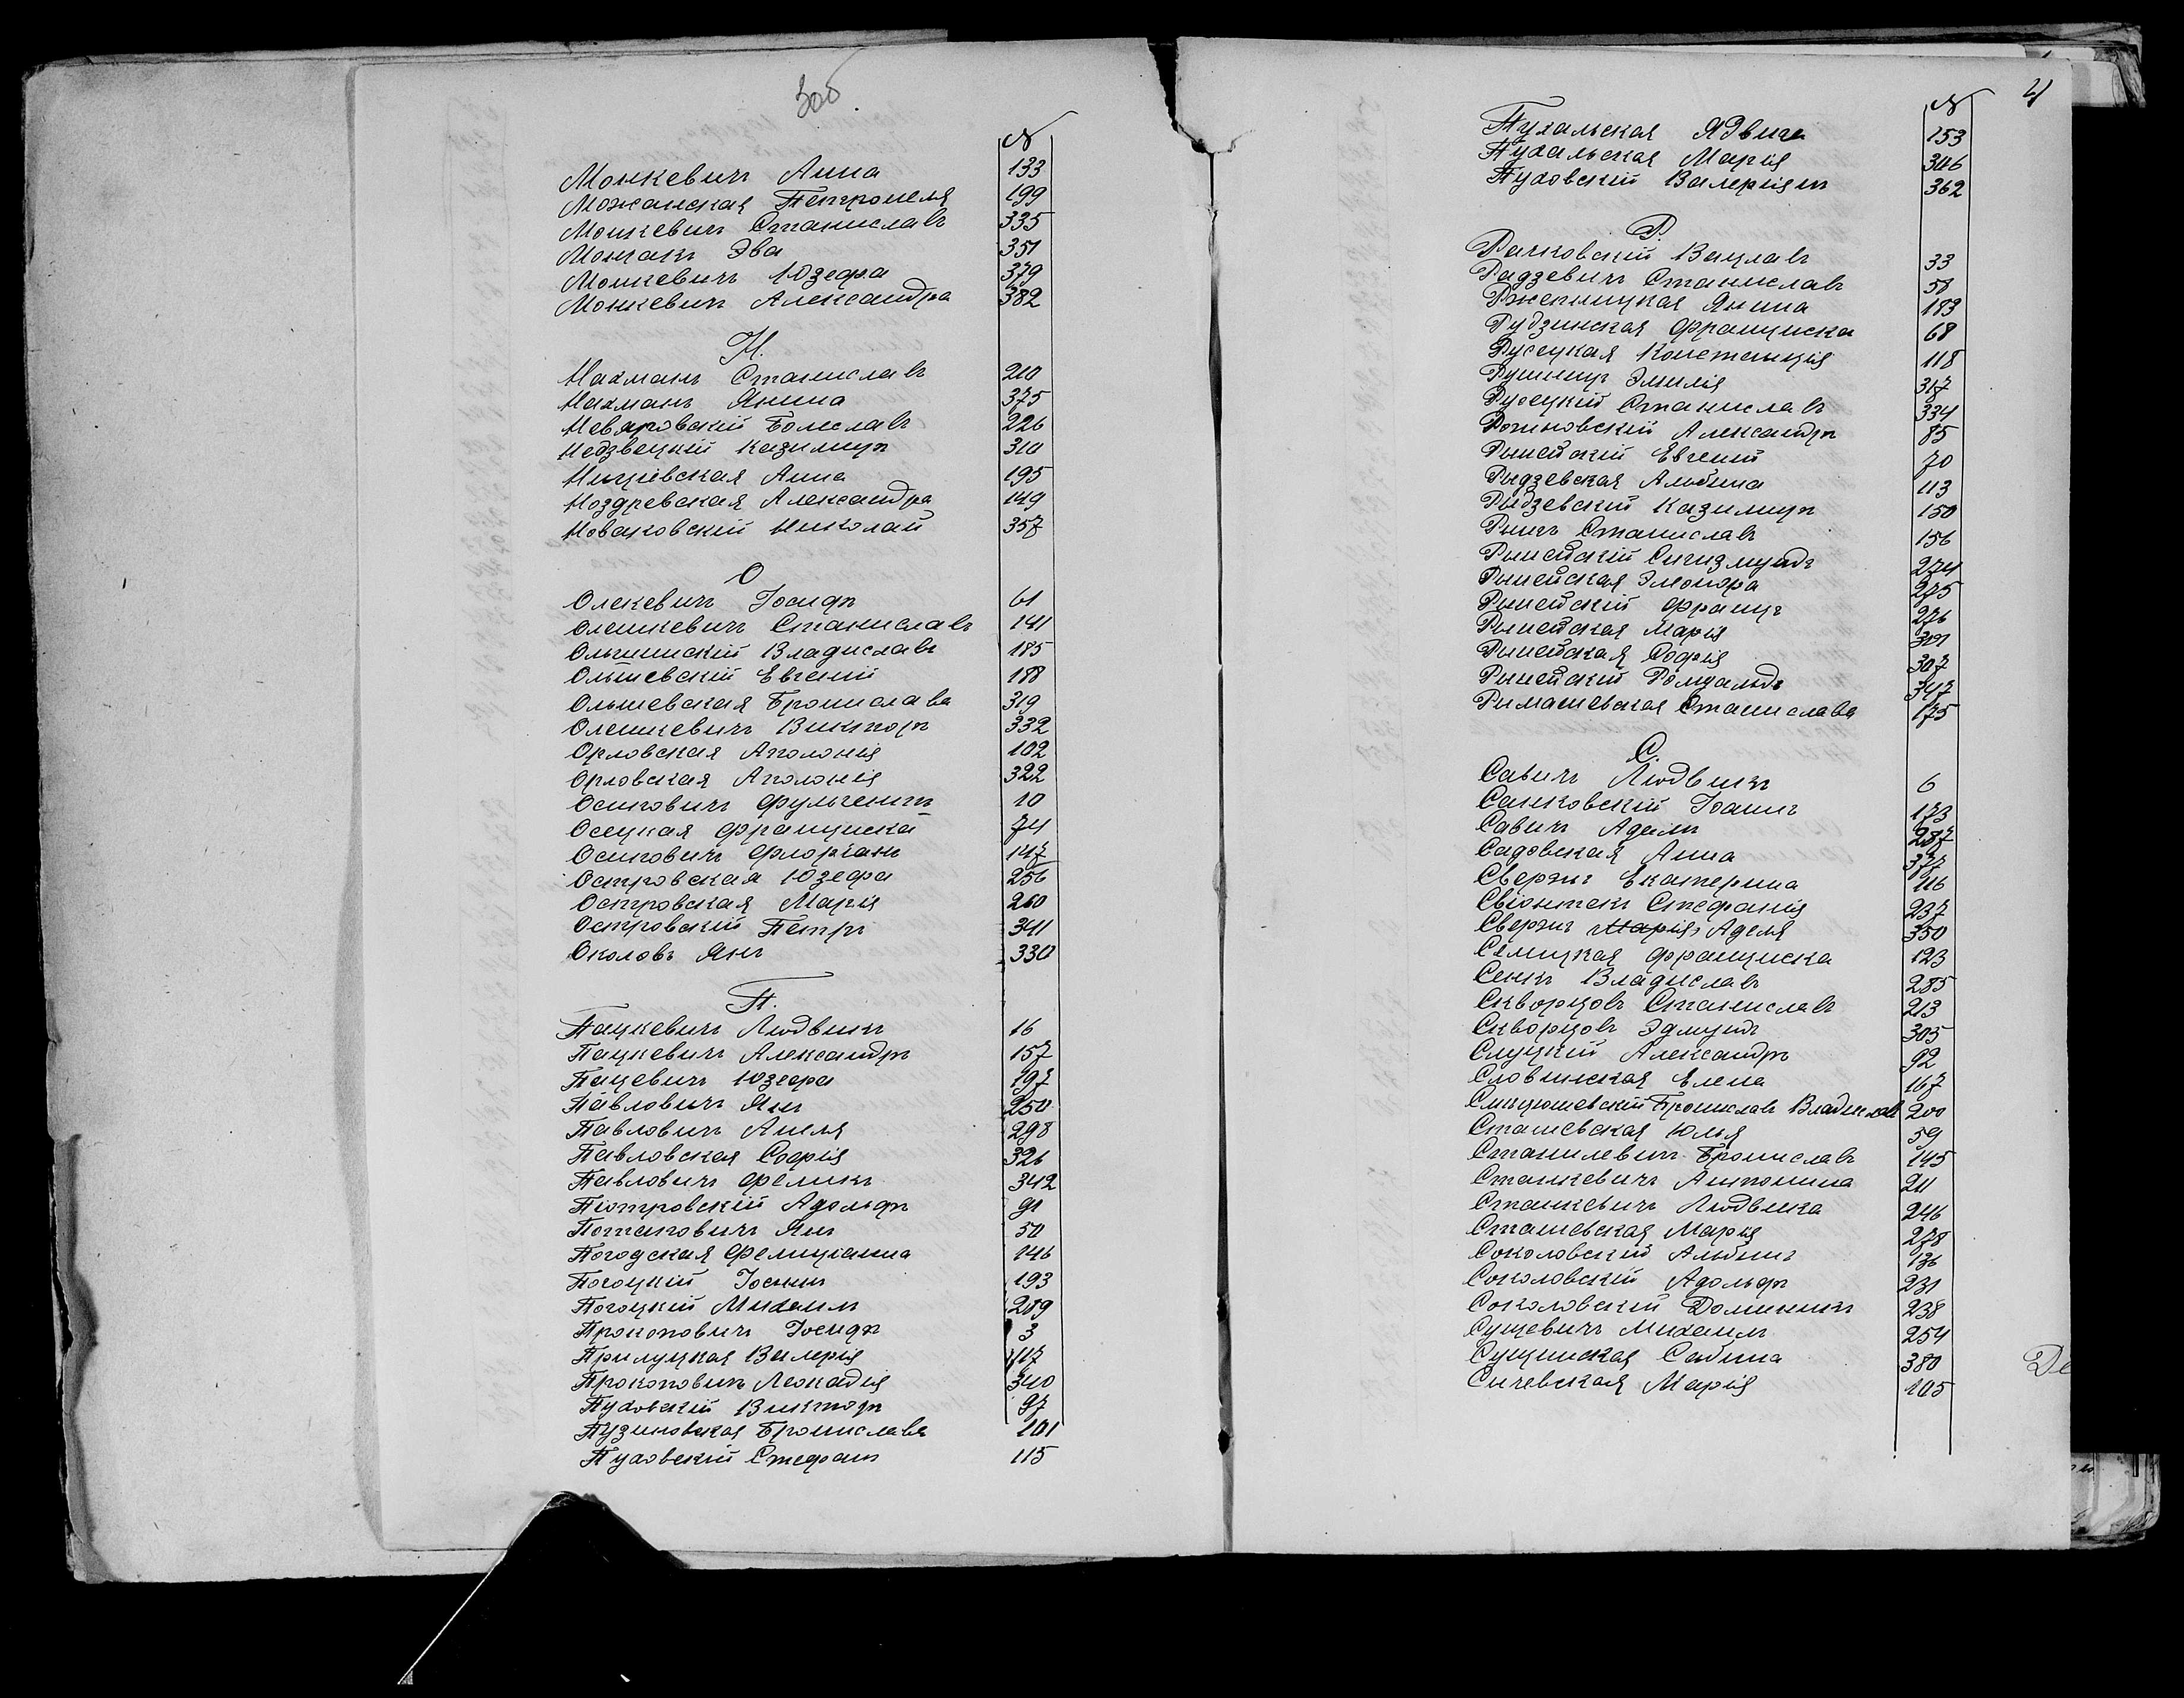 3об.
№
Монкевичъ Анна 133
Можанская Петронеля 199
Монкевичъ Станиславъ 335
Мончакъ Эва 351
Монкевичъ Юзефа 379
Монкевичъ Александра 382
Н.
Нахманъ Станиславъ 210
Нахманъ Янина 375
Невяровскій Болеславъ 226
Недзвецкій Казимиръ 310
Ницѣевская Анна 195
Ноздревская Александра 149
Новаковскій Николай 357
О
Олехевичъ Іосифъ 61
Олешкевичъ Станиславъ 141
Ольшинскій Владиславъ 185
Ольшевскій Евгеній 188
Ольшевская Брониславa 319
Олешкевичъ Викторъ 332
Орловская Аполонія 102
Орловская Аполонія 322
Осиповичъ Фульгентъ 10
Осецкая Францишка 74
Осиповичъ Флоріанъ 147
Островская Юзефа 256
Островская Марія 260
Островскій Петръ 341
Околовъ Янъ 330
П.
Пацкевичъ Людвикъ 16
Пацкевичъ Александръ 157
Пацевичъ Юзефа 197
Павловичъ Янъ 250
Павловичъ Анеля 298
Павловская Софія 326
Павловичъ Феликъ 342
Піотровскій Адольфъ 91
Потаповичъ Янъ 50
Погодская Фелиціанна 146
Погоцкій Іосифъ 193
Погоцкій Михаилъ 289
Прокоповичъ Іосифъ 3
Прилуцкая Валерія 117
Прокоповичъ Леокадія 340
Пуховскій Викторъ 97
Пузиновская Брониславa 101
Пуховскій Стефанъ 115
4
№
Пухальская Ядвига 153
Пухальская Марія 346
Пуховскій Валеріянъ 362
Р.
Рачковскій Вацлавъ 33
Радзевичъ Станиславъ 58
Ржепницкая Янина 183
Рудзинская Францишка 68
Русецкая Констанція 118
Рушицъ Эмилія 317
Русецкій Станиславъ 334
Рожновскій Александръ 85
Рынейскій Евгеній 70
Рыдзевская Альбина 113
Рыдзевскій Казимиръ 150
Рынгъ Станиславъ 156
Рынейскій Сигизмундъ 274
Рынейская Элеонора 275
Рынейскій Францъ 276
Рынейская Марія 301
Рынейская Софія 307
Рынейскій Ромуальдъ 347
Римашевская Станислава 175
С.
Савичъ Людвикъ 6
Санковскій Іоаннъ 173
Савичъ Адамъ 287
Садовская Анна 377
Свержъ Екатерина 116
Свіонтекъ Стефанія 237
Свержъ Марія, Аделя 350
Сѣлицкая Францишка 123
Сенкъ Владиславъ 285
Скворцовъ Станиславъ 213
Скворцовъ Эдмундъ 305
Слуцкій Александръ 92
Словинская Елена 167
Брониславъ Владиславъ 200
Сташевская Юлья 59
Станилевичъ Брониславъ 145
Станкевичъ Антонина 211
Станкевичъ Людвика 246
Сташевская Марія 278
Соколовскій Альбинъ 136
Соколовскій Адольфъ 231
Соколовскій Доминикъ 238
Сущевичъ Михаилъ 254
Сущинская Сабина 380
Сичевская Марія 105
Де